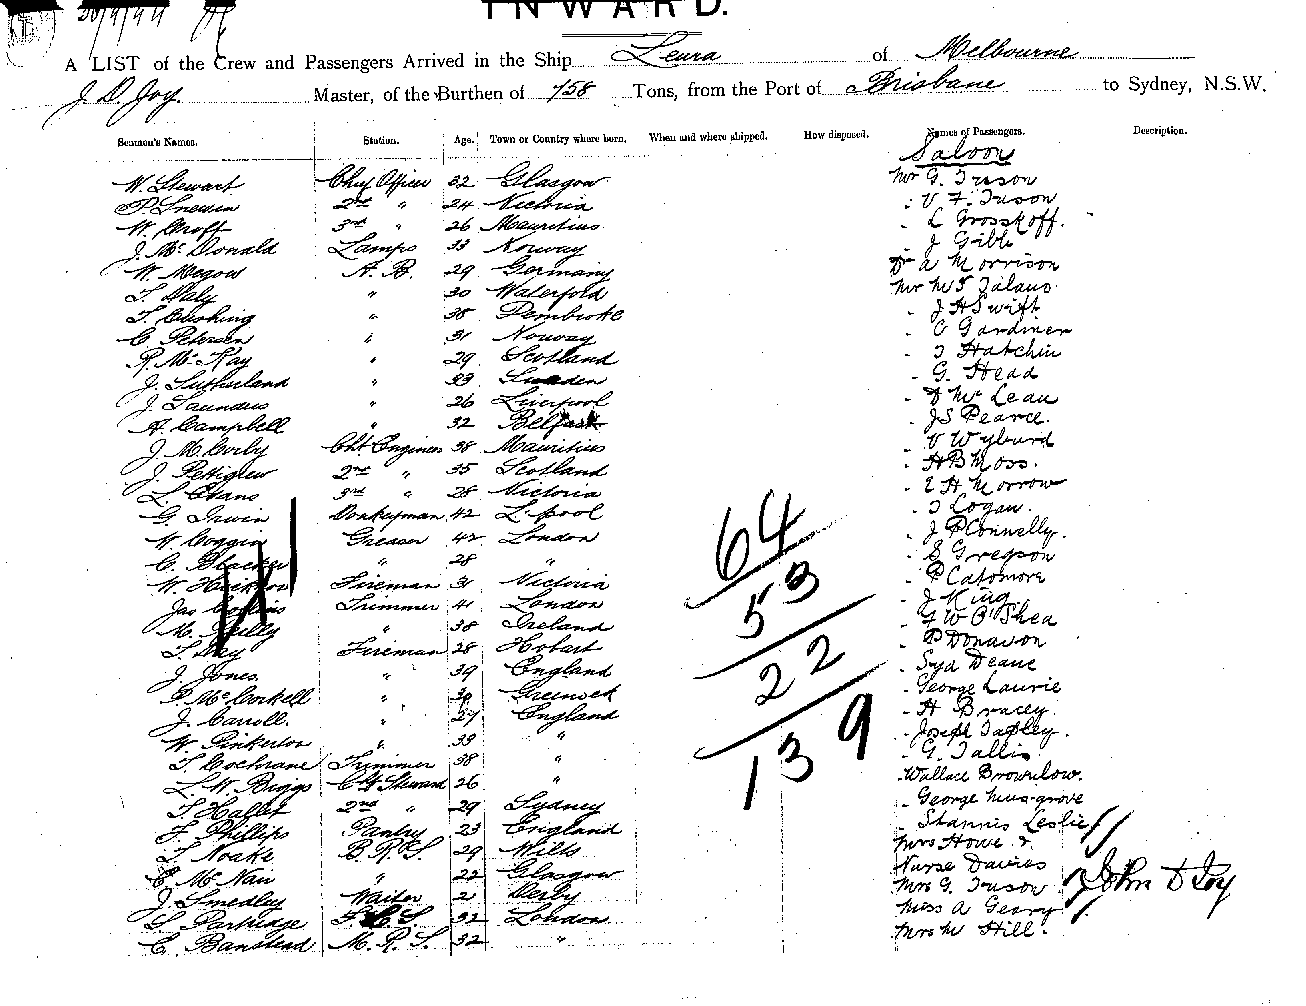 INWARD.
A LIST of the Crew and Passengers Arrived in the Ship Leura of Melbourne
J. D. Joy. Master, of the Burthen of 758 Tons, from the Port of Brisbane to Sydney, N.S.W.
Seamen's Names. Station. Age. Town or Country where born. When and where shipped. How disposed. Names of Passengers. Description.
Saloon
W. Stewart Chief Officer 32 Glasgow Mr G. Tuson
2nd " 24 Victoria " V F. Tuson
3rd " 26 Mauritius " C Grosskoff.
J. McDonald Lamps 33 Norway " J Gibb
W. Megow A.B. 29 Germany Dr A Morrison
T. Daly " 30 Waterford Mr
T. Cushing " 38 Pembroke " J H Swift
C Petersen " 31 Norway " C Gardiner
R. McKay " 29 Scotland " T Hatchin
J. Sutherland " 33 Sweden " G. Head
J. Saunders " 26 Liverpool " D McLean
A. Campbell " 32 Belfast " J S Pearce.
J. M. Corby Cht Engineer 38 Mauritius " V Wyburd
J. Pettigrew 2nd " 35 Scotland " H B Moss.
L. Evans 3rd " 28 Victoria " E H Morrow
G. Irwin Donkeyman 42 L.pool " T Logan.
W. Coggin Greaser 42 London " J P Connelly.
C. Blacker " 28 " " S Gregson
W. Fireman 31 Victoria " P Catomore
Jas Trimmer 41 London " J King
M. Reilly " 38 Ireland " G W O'Shea
T. Day Fireman 28 Hobart " P Donavon
J. Jones. " 39 England " Syd Deane
McCorkell " 30 Greenock " George Laurie
J. Carroll. " 27 England " H Bracey.
W. Pinkerton " 39 " " Joseph Tapley.
T. Cochrane Trimmer 38 " " G. Tallis
L. W. Biggs Cht Steward 26 " " Wallace Brownlow.
T. Hallet 2nd " 29 Sydney " George Musgrove
F. Phillips Pantry 23 England " Stannis Leslie
T. Noake B.R.S. 29 Wilts Mrs Howe &
C. McNair " 22 Glasgow Nurse Davies
J. Smedley Waiter 21 Derby Mrs G. Tuson
S. Partridge 32 London Miss A Geary
C. Banstead M.R.S. 32 " Mrs M Hill.
64
53
22
139
John D Joy